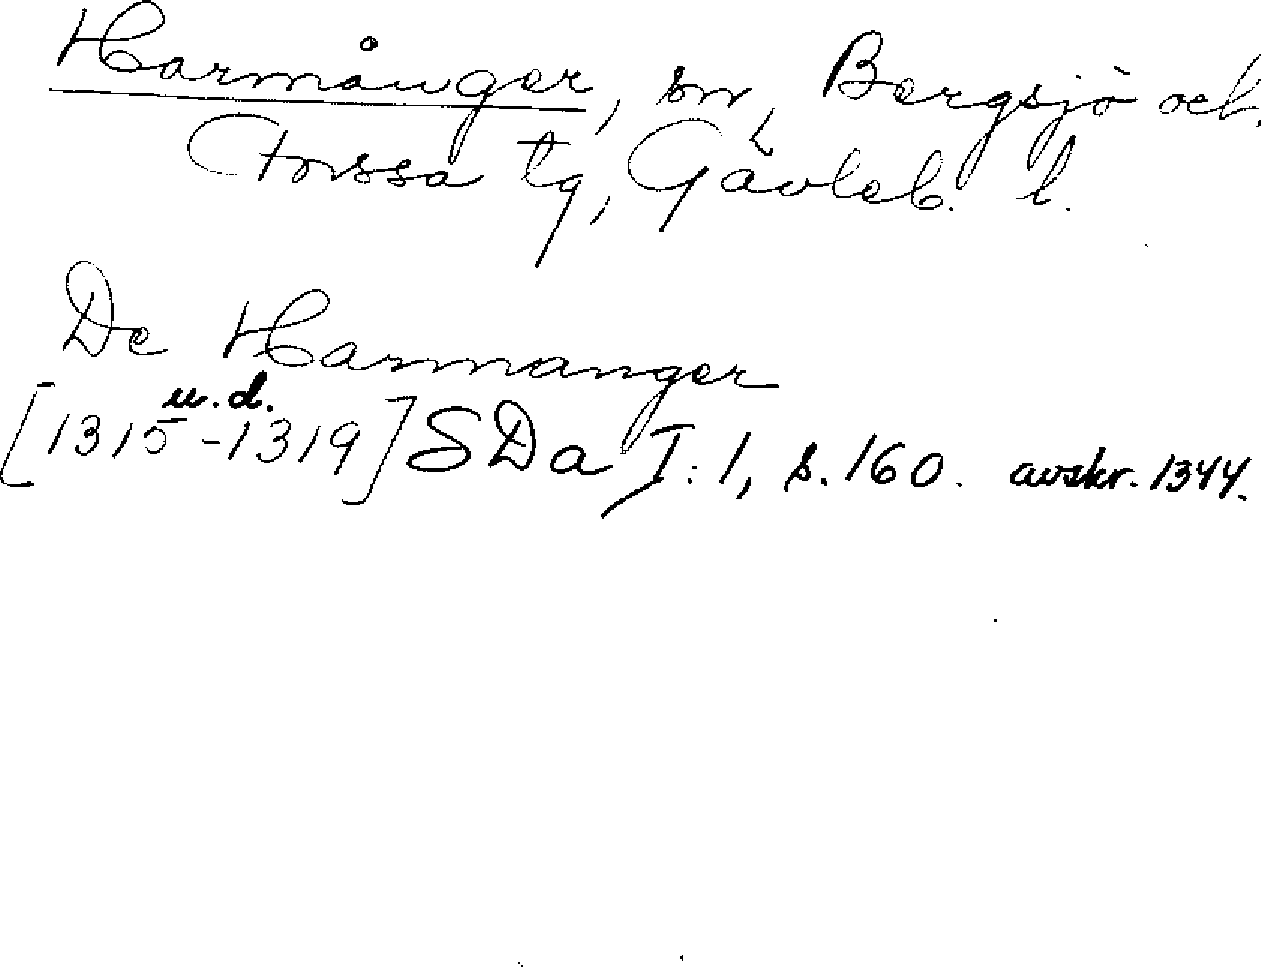 Harmånger, sn, Bergsjö och
Forssa tg, Gävleb. l.
De Harmanger
u.d.
[1315-1319] SDa I:1, s. 160. avskr. 1344.